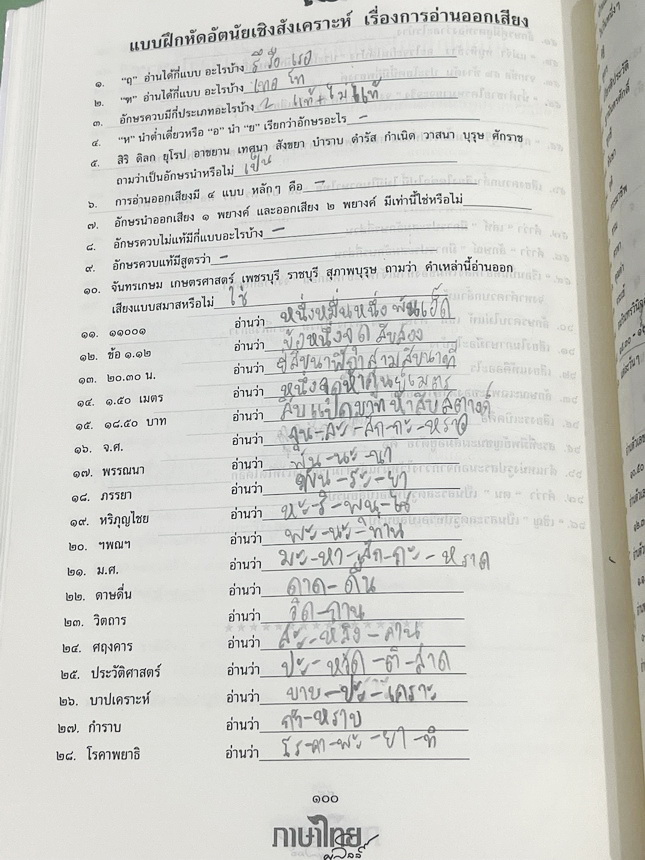 แบบฝึกหัดอัตนัยเชิงสังเคราะห์ เรื่องการอ่านออกเสียง
๑. "ฤ" อ่านได้กี่แบบ อะไรบ้าง รึ รือ เรอ
๒. "ฑ" อ่านได้กี่แบบ อะไรบ้าง โท
๓. อักษรควบมีกี่ประเภทอะไรบ้าง ๒ แท้+ไม่แท้
๔. "ห" นำต่ำเดี่ยวหรือ "อ" นำ "ย" เรียกว่าอักษรอะไร –
๕. สิริ ดิลก ยุโรป อาขยาน เทศนา สังขยา บำราบ ดำรัส กำเนิด วาสนา บุรุษ ศักราช
ถามว่าเป็นอักษรนำหรือไม่ เป็น
๖. การอ่านออกเสียงมี ๔ แบบ หลักๆ คือ –
๗. อักษรนำออกเสียง ๑ พยางค์ และออกเสียง ๒ พยางค์ มีเท่านี้ใช่หรือไม่
๘. อักษรควบไม่แท้มีกี่แบบอะไรบ้าง –
๙. อักษรควบแท้มีสูตรว่า –
๑๐. จันทรเกษม เกษตรศาสตร์ เพชรบุรี ราชบุรี สุภาพบุรุษ ถามว่า คำเหล่านี้อ่านออก
เสียงแบบสมาสหรือไม่ ใช่
๑๑. ๑๑๐๐๑ อ่านว่า หนึ่งหมื่นหนึ่งพันเอ็ด
๑๒. ข้อ ๑.๑๒ อ่านว่า ข้อหนึ่งจุดสิบสอง
๑๓. ๒๐.๓๐ น. อ่านว่า ยี่สิบนาฬิกาสามสิบนาที
๑๔. ๑.๕๐ เมตร อ่านว่า หนึ่งจุดห้าศูนย์เมตร
๑๕. ๑๘.๕๐ บาท อ่านว่า สิบแปดบาทห้าสิบสตางค์
๑๖. จ.ศ. อ่านว่า จุน-ละ-สัก-กะ-หราด
๑๗. พรรณนา อ่านว่า พัน-นะ-นา
๑๘. ภรรยา อ่านว่า
๑๙. หริภุญไชย อ่านว่า หะ-ริ-พุน-ไช
๒๐. ฯพณฯ อ่านว่า พะ-นะ-ท่าน
๒๑. ม.ศ. อ่านว่า มะ-หา-สัก-กะ-หราด
๒๒. ดาษดื่น อ่านว่า ดาด-ดื่น
๒๓. วิตถาร อ่านว่า วิด-ถาน
๒๔. ศฤงคาร อ่านว่า สะ-หลิง-คาน
๒๕. ประวัติศาสตร์ อ่านว่า ปะ-หวัด-ติ-สาด
๒๖. บาปเคราะห์ อ่านว่า บาบ-ปะ-เคราะ
๒๗. กำราบ อ่านว่า กำ-หราบ
๒๘. โรคาพยาธิ อ่านว่า โร-คา-พะ-ยา-ทิ
๑๐๐
ภาษาไทย